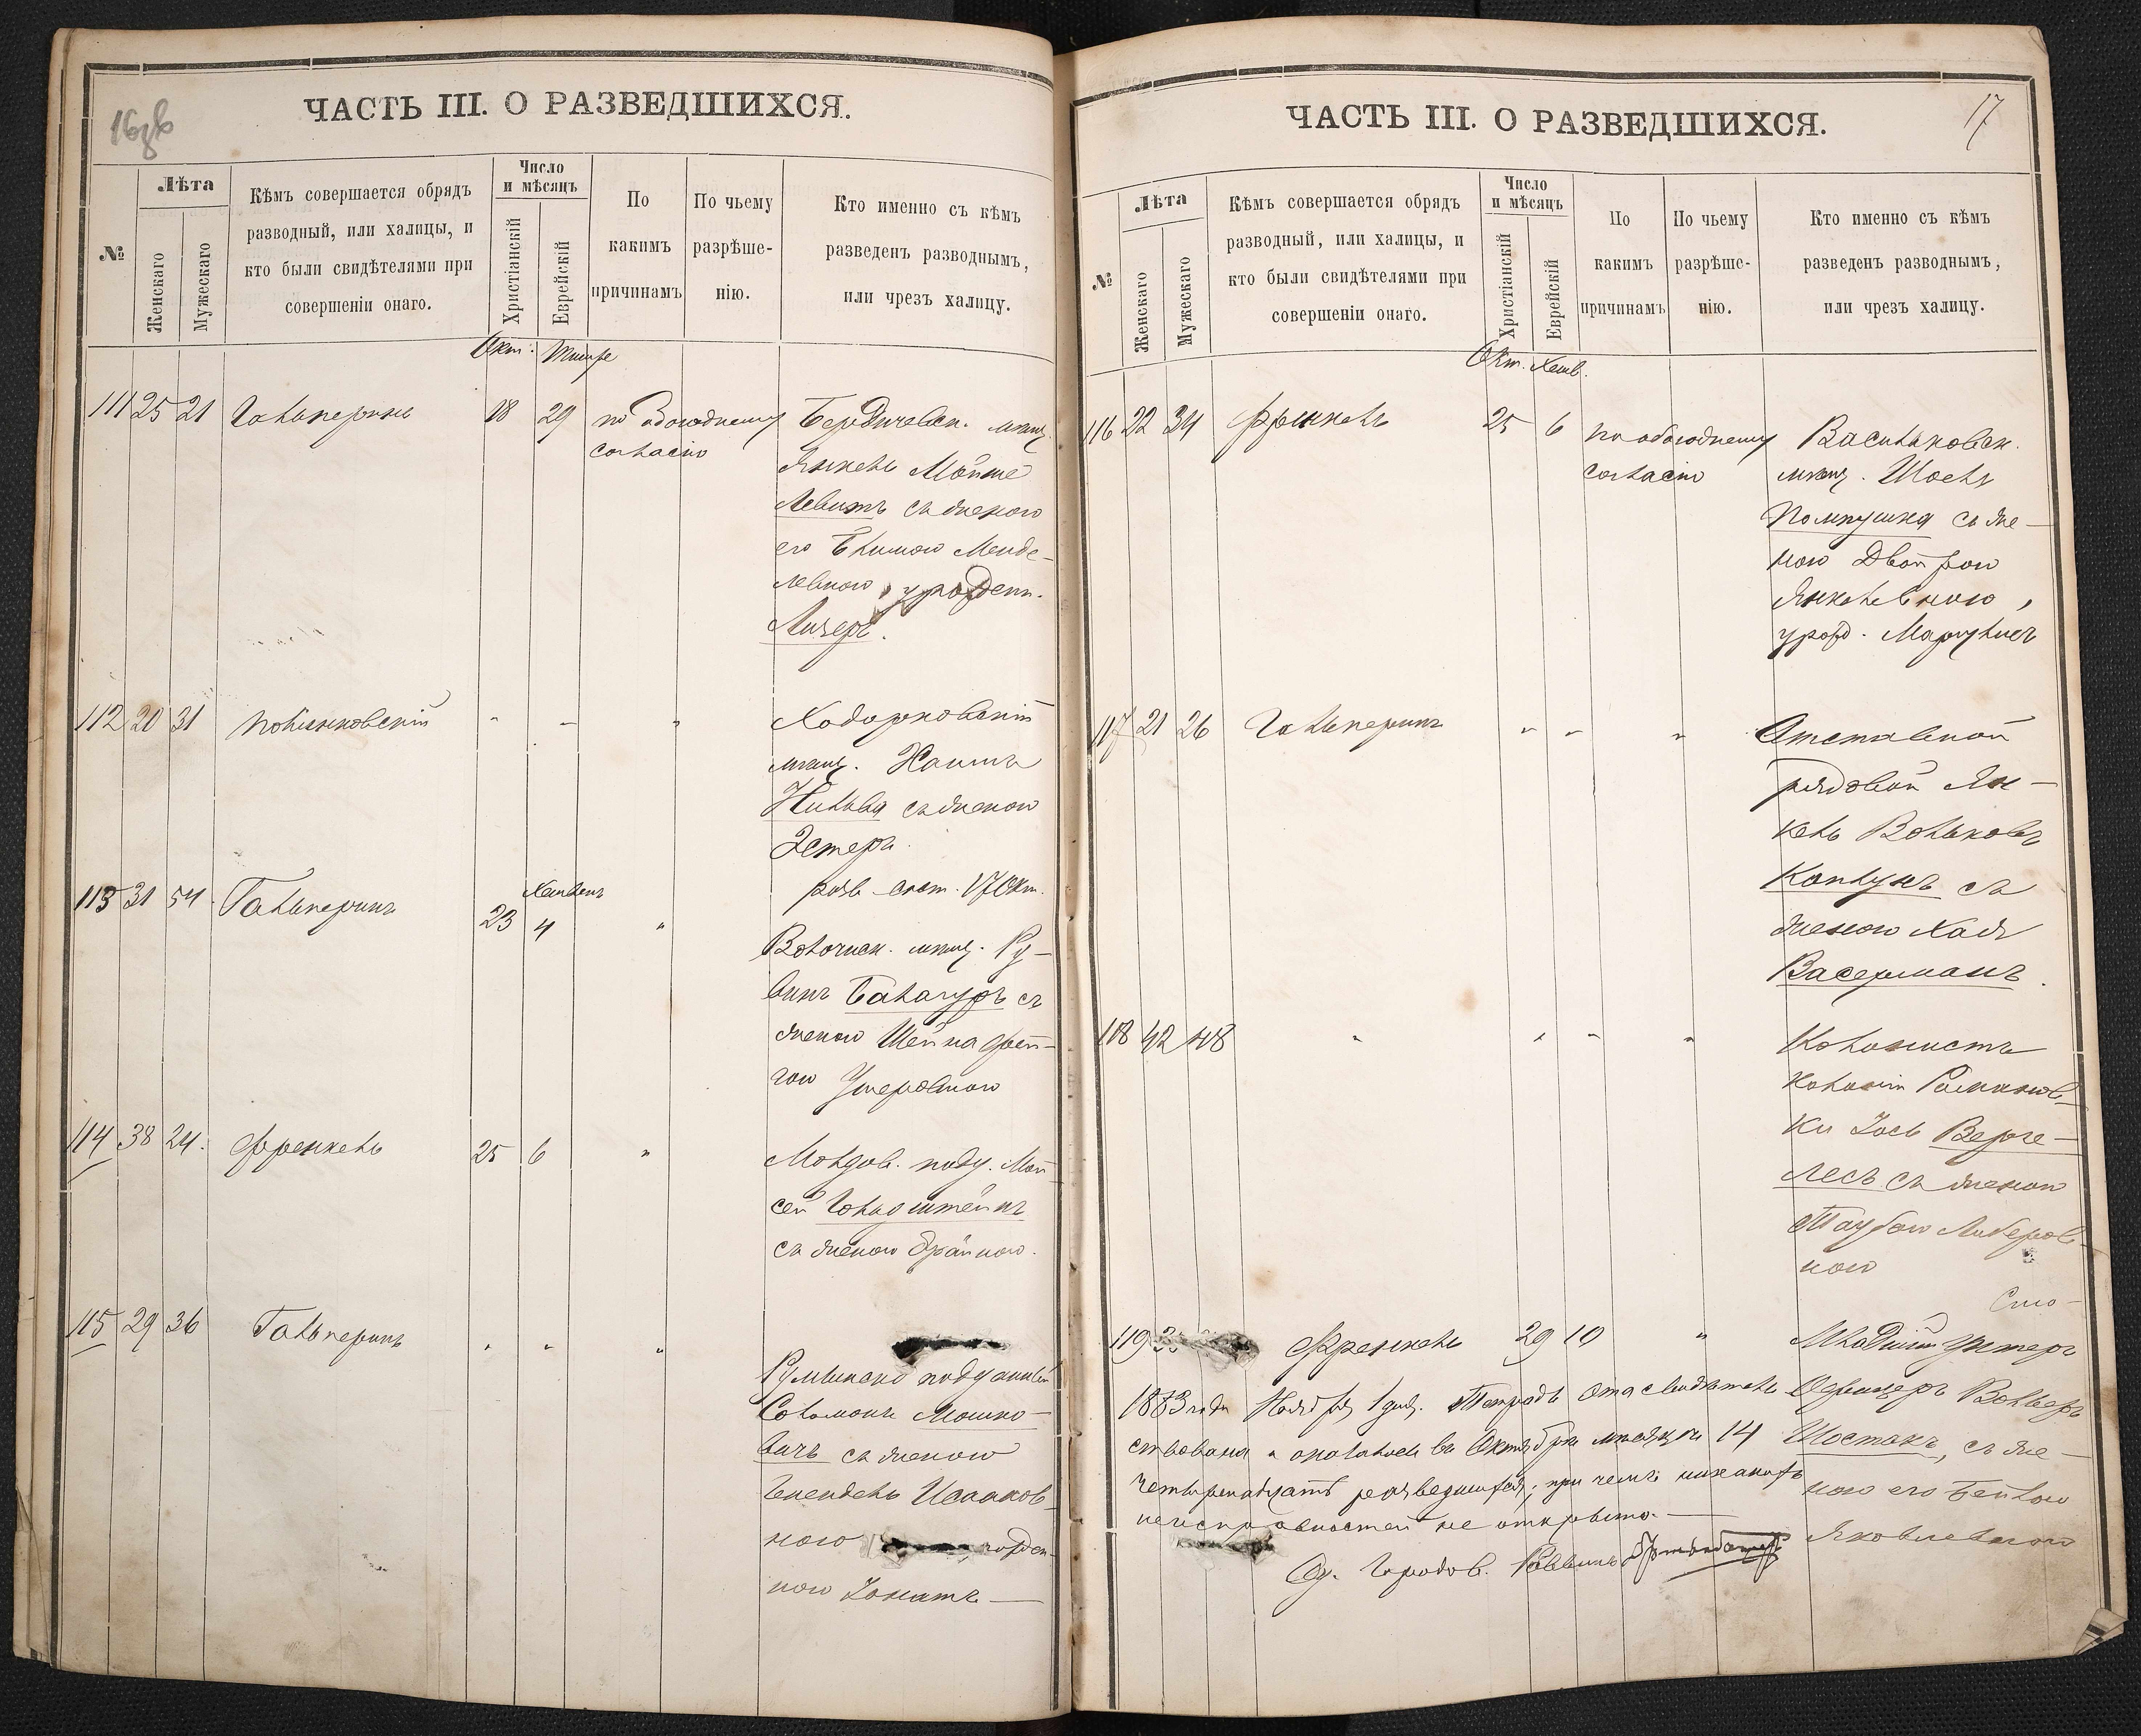 16зв
ЧАСТЬ III. О РАЗВЕДШИХСЯ.
№
Лѣта
Женскаго
Мужескаго
Кѣмъ совершается обрядъ
разводный, или халицы, и
кто были свидѣтелями при
совершеніи онаго.
Число
и мѣсяцъ
Христіанскій
Еврейскій
По
какимъ
причинамъ
По чьему
разрѣше-
нію.
Кто именно съ кѣмъ
разведенъ разводнымъ,
или чрезъ халицу.
Окт. Тишре
111 25 21 Гальперинъ 18 29 по обоюдному
согласію
Бердичевск. мѣщ.
Янкель Мойше
Левитъ съ женою
его Блимою Менде-
левною, урожден.
Лизеръ.
112 20 31 " - "
Ходорковскій
мѣщ. Хаимъ
съ женою
Эстеръ.
разв. сост. 17 Окт.
113 31 54 Гальперинъ 23 Хешвенъ 4 "
Волочиск. мѣщ. Ру-
винъ Балагуръ съ
женою Шейна Фей-
гою Ушеровною
114 38 24. Френкель 25 6 "
Молдов. подд. Мой-
сей Гольдштейнъ
съ женою Брайною.
115 29 36 Гальперинъ " " "
Румынско подданный
Соломонъ Мошко-
вичъ съ женою
Исааков-
ною, рожден-
ною
17
ЧАСТЬ III. О РАЗВЕДШИХСЯ.
№
Лѣта
Женскаго
Мужескаго
Кѣмъ совершается обрядъ
разводный, или халицы, и
кто были свидѣтелями при
совершеніи онаго.
Число
и мѣсяцъ
Христіанскій
Еврейскій
По
какимъ
причинамъ
По чьему
разрѣше-
нію.
Кто именно съ кѣмъ
разведенъ разводнымъ,
или чрезъ халицу.
Окт. Хешв.
116 22 34 Френкель 25 6 по обоюдному
согласію
Васильковск.
мѣщ. Шоель
Пампушка съ же-
ною Двойрою
Янкелевною,
урожд.
117 21 26 Гальперинъ " " "
Отставной
рядовой Ян-
кель Вольковъ
Каплунъ съ
женою Хая
Васерманъ.
118 42 48 " " - "
Колонистъ
колоніи Романов-
ки Іось Верге-
лесъ съ женою
Таубою Либеров-
ною
119 Френкель 29 10 "
Младшій Унтеръ
Офицеръ Вольферъ
Шостакъ, съ же-
ною его Бейлою
Яковлевною
1883 года Ноября 1 дня. Тетрадь эта свидѣтель
ствована и оказалось въ Октябрѣ мѣсяцѣ 14
четырнадцать разведшихся; при чемъ никакихъ
неисправностей не открыто.
Од. Городов. Раввинъ